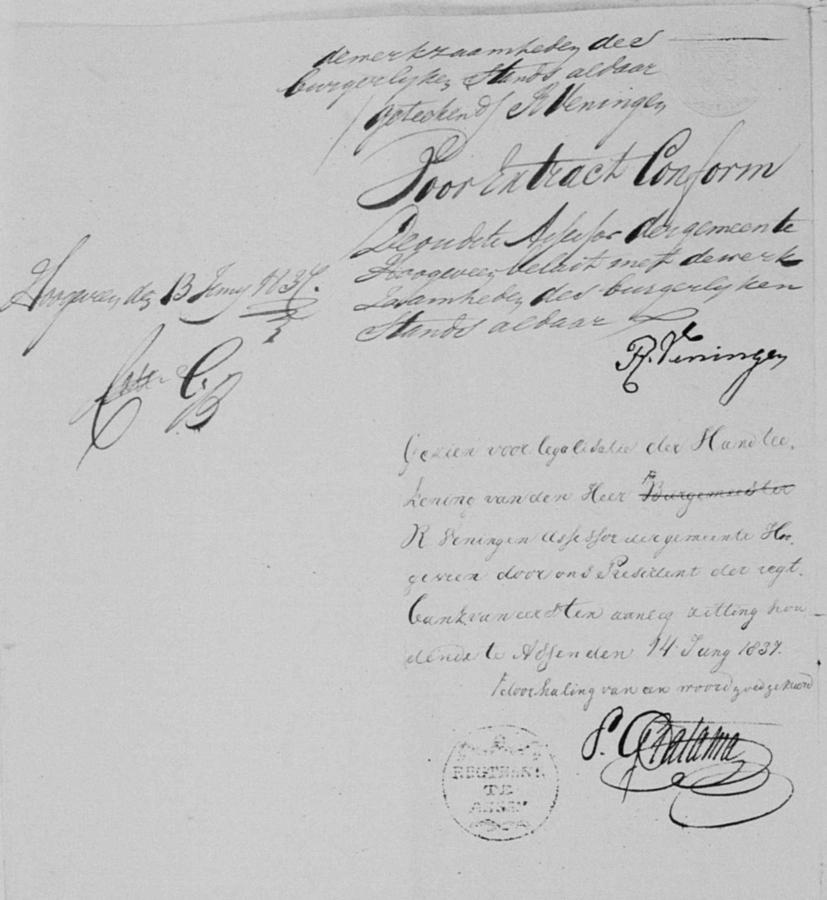 dewerkzaamheden des
burgerlyken Stands aldaar
geteekend R Veningen
Voor Extract Conform
De oudste Assessor der gemeente
Hoogeveen belast met de werk
zaamheden des burgerlyken
Stands aldaar
R. Veningen
Hoogeveen den 13 Juny 1837.
Gezien voor legalisatie der Handtee,
kening van den Heer Burgemeester
R Veningen Assessor der gemeente Hoo,
geveen door ons President der regt.
bank van eersten aanleg zitting hou
dende te Assen den 14 Juny 1837.
doorhaling van een woord goedgekeurd
P. Gratama
REGTBANK
TE
ASSEN